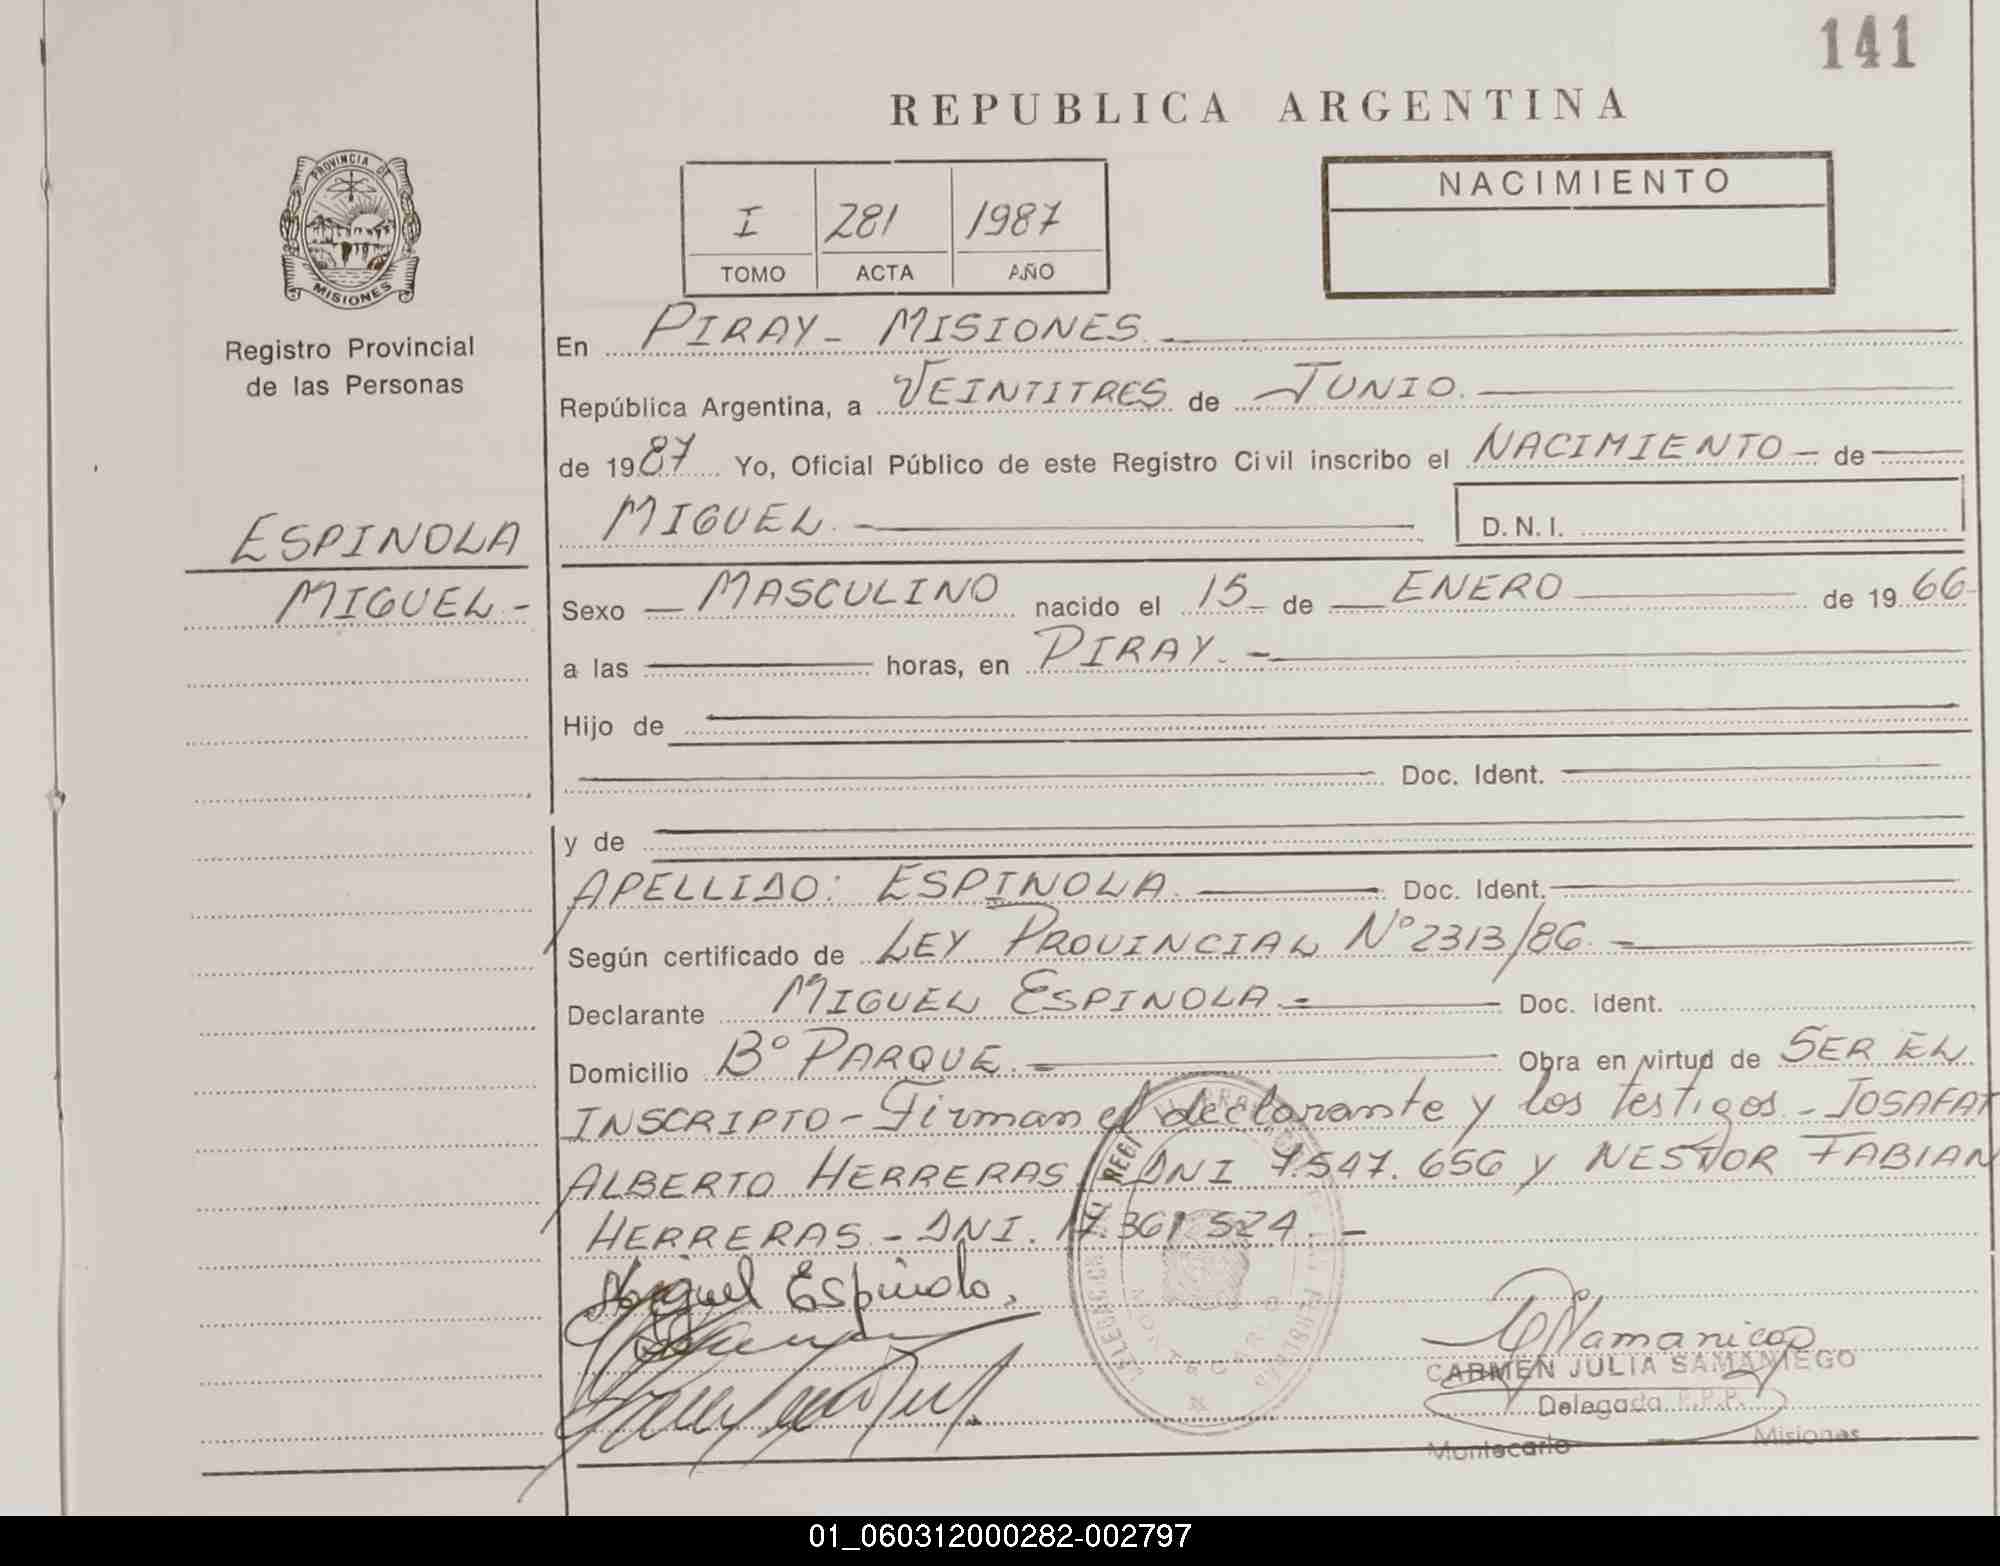 141
REPUBLICA ARGENTINA
PROVINCIA DE
MISIONES
Registro Provincial
de las Personas
I 281 1987
TOMO ACTA AÑO
NACIMIENTO
En PIRAY - MISIONES.
República Argentina, a VEINTITRES de JUNIO.
de 1987 Yo, Oficial Público de este Registro Civil inscribo el NACIMIENTO - de
MIGUEL.
D.N.I.
ESPINOLA
MIGUEL -
Sexo - MASCULINO nacido el 15 - de - ENERO de 1966
a las horas, en PIRAY. -
Hijo de
Doc. Ident.
y de
APELLIDO: ESPINOLA. Doc. Ident.
Según certificado de LEY PROVINCIAL Nº 2313/86. -
Declarante MIGUEL ESPINOLA. - Doc. Ident.
Domicilio Bº PARQUE. - Obra en virtud de SER EL
INSCRIPTO - Firman el declarante y los testigos - JOSAFAT
ALBERTO HERRERAS DNI 7.547.656 y NESTOR FABIAN
HERRERAS - DNI. 17.361.524. -
Miguel Espinola.
CARMEN JULIA SAMANIEGO
Delegada R.P.P.
Montecarlo Misiones
01_060312000282-002797